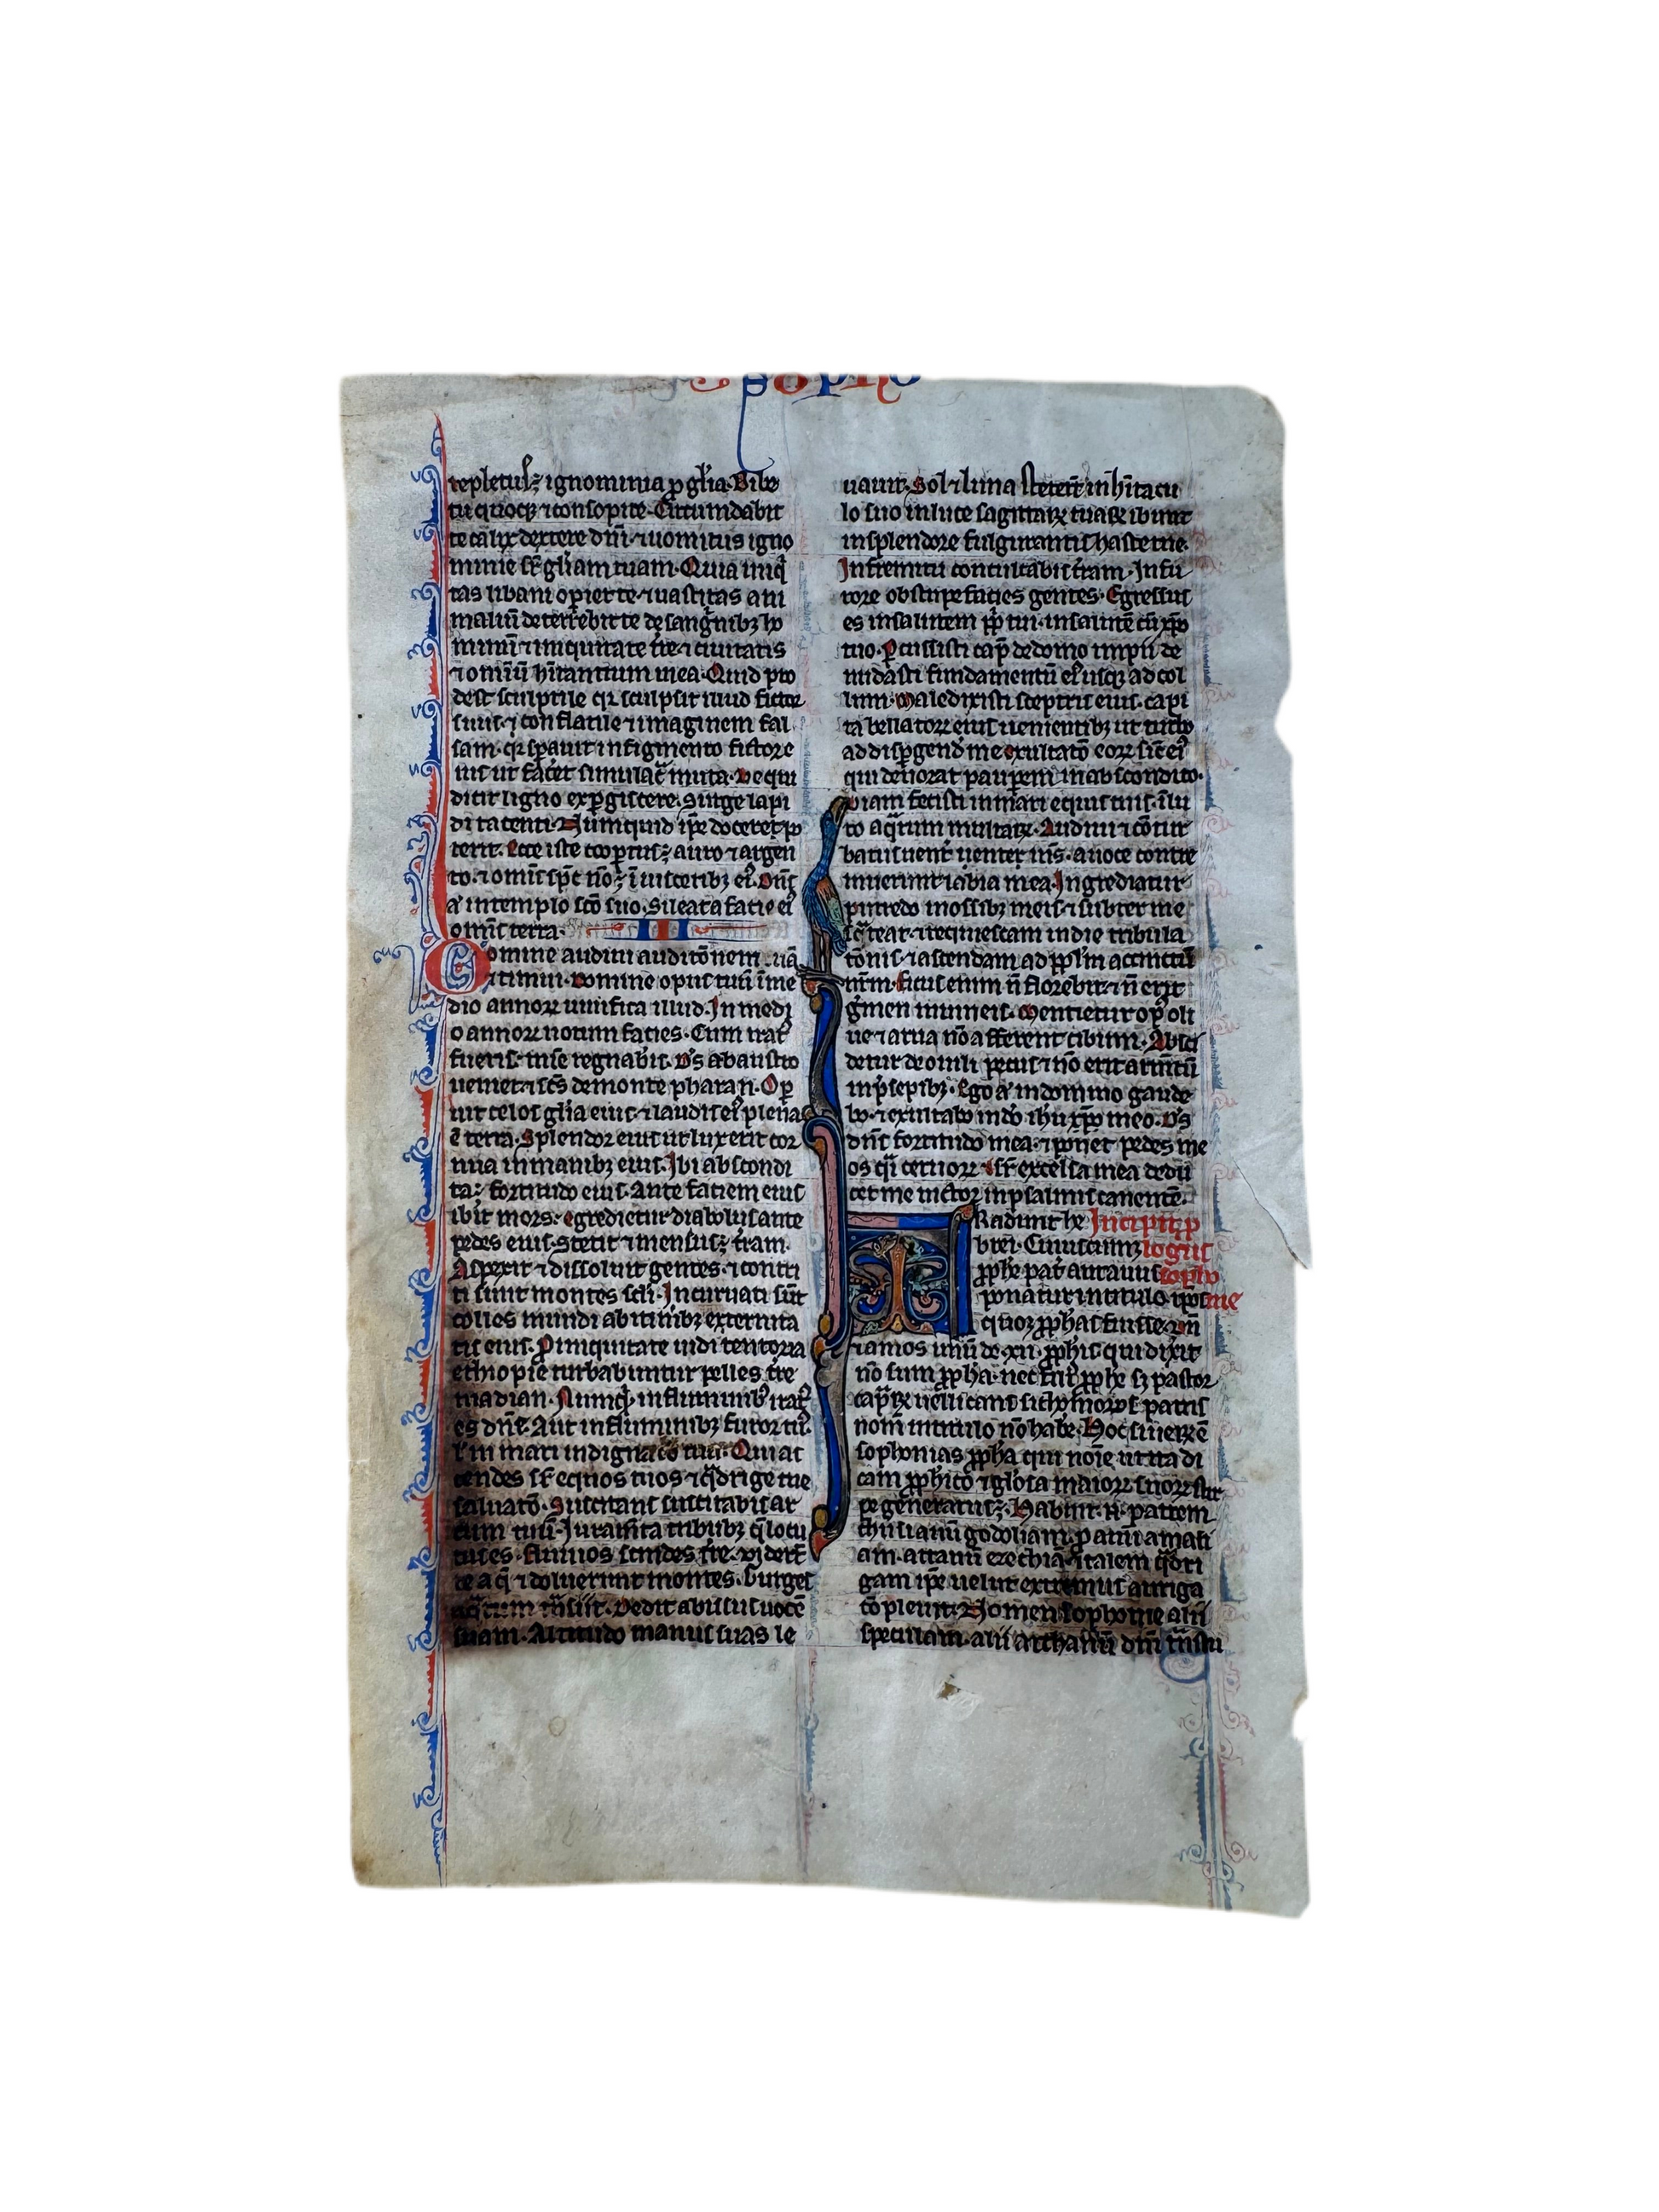 sopho
repletuſ ē ignominia ꝓ gl̃ia. Bibe
tu quoqꝫ ⁊ conſopire. Circumdabit
te calix dextere dn̄i. ⁊ uomitus igno
minie ſr̄ gl̃iam tuam. Quia iniq̇
tas libani operiet te ⁊ uaſtitas ani
maliū deterrebit te de ſanguībꝫ ho
minū ⁊ iniquitate tr̄e ⁊ ciuitatis
⁊ omīū hītantium in ea. Quid pro
deſt ſculptile qꝛ ſculpſit illud fictor
ſuus. ⁊ conflatile ⁊ imaginem fal
ſam. qꝛ ſꝑauit in figmento fictor e
ius ut faceret ſimulac̃ muta. Ue qui
dicit ligno exꝑgiſcere. Surge lapi
di tacenti. Numquid ip̄e docere po
terit. Ecce iſte coopertus ē auro ⁊ argen
to. ⁊ omīs ſp̄c nō ē ī uiſceribꝫ eiꝰ. Dn̄s
aū in templo ſc̄o ſuo. Sileat a facie eiꝰ
omīs terra.
Domine audiui auditōnem tuā
⁊ timui. Domine opus tuū ī me
dio annoꝝ uiuifica illud. In medi
o annoꝝ notum facies. Cum iratꝰ
fueris. mīe regnabis. Ds ab auſtro
ueniet. ⁊ ſc̄s de monte pharan. Oꝑ
uit celos gl̃ia eius. ⁊ laudis eiꝰ plena
ē terra. Splendor eius ut lux erit cor
nua in manibꝫ eius. Ibi abſcondi
ta ē fortitudo eius. Ante faciem eius
ibit mors. egredietur diabolus ante
pedes eius. Stetit ⁊ menſus ē tr̄am.
Aſpexit ⁊ diſſoluit gentes. ⁊ contri
ti ſunt montes ſcl̃i. Incuruati ſūt
colles mundi ab itinībꝫ eternita
tis eius. Pro iniquitate uidi tentoria
ethiopie turbabuntur pelles tr̄e
madian. Numq̇d in fluminibꝫ iratꝰ
es dn̄e. Aut in fluminibꝫ furor tuꝰ.
ł in mari indignatō tua. Qui aſ
cendes ſr̄ equos tuos ⁊ q̄drige tue
ſaluatō. Suſcitans ſuſcitabis ar
cum tuū. Iuram̄ta tribubꝫ q̄ locu
tus es. Fluuios ſcindes tr̄e. uiderūt
te aq̄ ⁊ doluerunt montes. Gurges
aq̄rum tn̄ſiit. Dedit abiſſus uocē
ſuam. Altitudo manus ſuas le
uauit. Sol ⁊ luna ſteterūt in hītacu
lo ſuo in luce ſagittaꝝ tuaꝝ ibunt
in ſplendore fulgurantis haſte tue.
In fremitu conculcabis tr̄am. In fu
rore obſtupefacies gentes. Egreſſus
es in ſalutem ꝓpl̄i tui. in ſalutē cū xp̄o
tuo. Percuſſiſti cap̄ de domo impii de
nudaſti fundamentū eiꝰ uſqꝫ ad col
lum. Maledixiſti ſceptris eius. capi
ta bellatoꝝ eius uenientibꝫ ut turbo
ad diſꝑgend̄ me. exultatō eoꝝ ſic̄ eiꝰ
qui deuorat pauꝑem in abſcondito.
Uiam feciſti in mari equis tuis. ī lu
to aq̄rum multaꝝ. Audiui ⁊ contur
batus uenter ms̄. a uoce contre
muerunt labia mea. Ingrediatur
putredo in oſſibꝫ meis. ⁊ ſubter me
ſcateat. ut requieſcam in die tribula
tōnis. ⁊ aſcendam ad ppl̄m accinctū
nr̄m. Ficus enim n̄ florebit. ⁊ n̄ erit
germen in uineis. Mentietur opꝰ oli
ue ⁊ arua nō afferent cibum. Abſci
detur de ouili pecus ⁊ nō erit armtū
in pſepibꝫ. Ego aū in domino gaude
bo. ⁊ exultabo in dō ihu xp̄o meo. Ds
dn̄s fortitudo mea. ⁊ ponet pedes me
os q̇i ceruoꝝ. ⁊ ſr̄ excelſa mea dedu
cet me uictor in pſalmis canentē.
Tradunt he Incipit p
brei. Cuiuſcumqꝫ logus
ꝓphe pat̄ aut auus ſopho
ponatur in titulo ip̄os nie
quoqꝫ ꝓphas fuiſſe. un̄
⁊ amos unū de .xii. ꝓphis qui dixit
nō ſum ꝓpha. nec filiꝰ ꝓphe ſꝫ paſtor
capraꝝ uellicans ſichomoros patris
nom̄ in titulo nō habet. Hoc ſi ueꝝ ē
ſophonias ꝓpha qui noīe ut ita di
cam ꝓphico ⁊ gloſa maioꝝ ſuoꝝ ſtir
pe generatus ē. Habuit .n. patrem
chuſiam auū godoliam. ꝓ auū amari
am. attauū ezechiā. ⁊ talem q̄dri
gam ip̄e uelut extremus auriga
cōpleuit. Nomen ſophonie alii
ſpeculam. alii archanū dn̄i tn̄ſtu